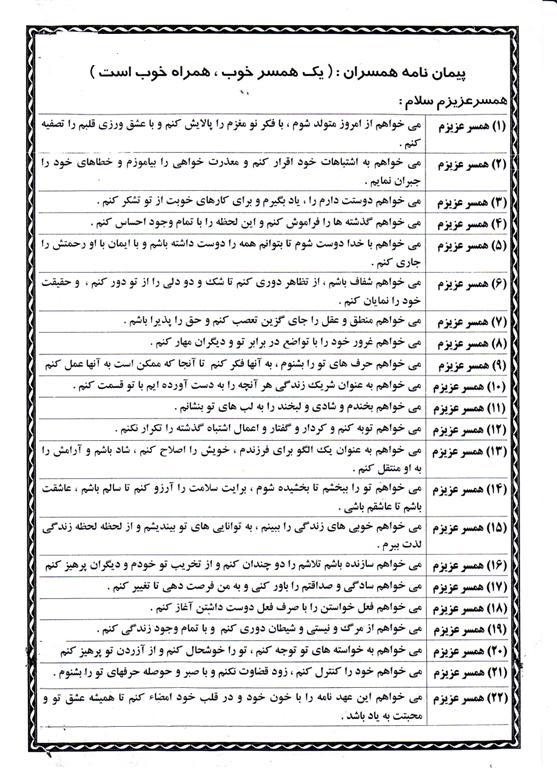 پیمان نامه همسران : ( یک همسر خوب ، همراه خوب است )
همسرعزیزم سلام :
(۱) همسر عزیزم می خواهم از امروز متولد شوم ، با فکر نو مغزم را پالایش کنم و با عشق ورزی قلبم را تصفیه
کنم .
(۲) همسر عزیزم می خواهم به اشتباهات خود اقرار کنم و معذرت خواهی را بیاموزم و خطاهای خود را
جبران نمایم .
(۳) همسر عزیزم می خواهم دوستت دارم را ، یاد بگیرم و برای کارهای خوبت از تو تشکر کنم .
(۴) همسر عزیزم می خواهم گذشته ها را فراموش کنم و این لحظه را با تمام وجود احساس کنم .
(۵) همسر عزیزم می خواهم با خدا دوست شوم تا بتوانم همه را دوست داشته باشم و با ایمان با او رحمتش را
جاری کنم .
(۶) همسر عزیزم می خواهم شفاف باشم ، از تظاهر دوری کنم تا شک و دو دلی را از تو دور کنم ، و حقیقت
خود را نمایان کنم .
(۷) همسر عزیزم می خواهم منطق و عقل را جای گزین تعصب کنم و حق را پذیرا باشم .
(۸) همسر عزیزم می خواهم غرور خود را با تواضع در برابر تو و دیگران مهار کنم .
(۹) همسر عزیزم می خواهم حرف های تو را بشنوم ، به آنها فکر کنم تا آنجا که ممکن است به آنها عمل کنم
(۱۰) همسر عزیزم می خواهم به عنوان شریک زندگی هر آنچه را به دست آورده ایم با تو قسمت کنم .
(۱۱) همسر عزیزم می خواهم بخندم و شادی و لبخند را به لب های تو بنشانم .
(۱۲) همسر عزیزم می خواهم توبه کنم و کردار و گفتار و اعمال اشتباه گذشته را تکرار نکنم .
(۱۳) همسر عزیزم می خواهم به عنوان یک الگو برای فرزندم ، خویش را اصلاح کنم ، شاد باشم و آرامش را
به او منتقل کنم .
(۱۴) همسر عزیزم می خواهم تو را ببخشم تا بخشیده شوم ، برایت سلامت را آرزو کنم تا سالم باشم ، عاشقت
باشم تا عاشقم باشی .
(۱۵) همسر عزیزم می خواهم خوبی های زندگی را ببینم ، به توانایی های تو بیندیشم و از لحظه لحظه زندگی
لذت ببرم .
(۱۶) همسر عزیزم می خواهم سازنده باشم تلاشم را دو چندان کنم و از تخریب تو خودم و دیگران پرهیز کنم
(۱۷) همسر عزیزم می خواهم سادگی و صداقتم را باور کنی و به من فرصت دهی تا تغییر کنم .
(۱۸) همسر عزیزم می خواهم فعل خواستن را با صرف فعل دوست داشتن آغاز کنم .
(۱۹) همسر عزیزم می خواهم از مرگ و نیستی و شیطان دوری کنم و با تمام وجود زندگی کنم .
(۲۰) همسر عزیزم می خواهم به خواسته های تو توجه کنم ، تو را خوشحال کنم و از آزردن تو پرهیز کنم
(۲۱) همسر عزیزم می خواهم خود را کنترل کنم ، زود قضاوت نکنم و با صبر و حوصله حرفهای تو را بشنوم .
(۲۲) همسر عزیزم می خواهم این عهد نامه را با خون خود و در قلب خود امضاء کنم تا همیشه عشق تو و
محبتت به یاد باشد .